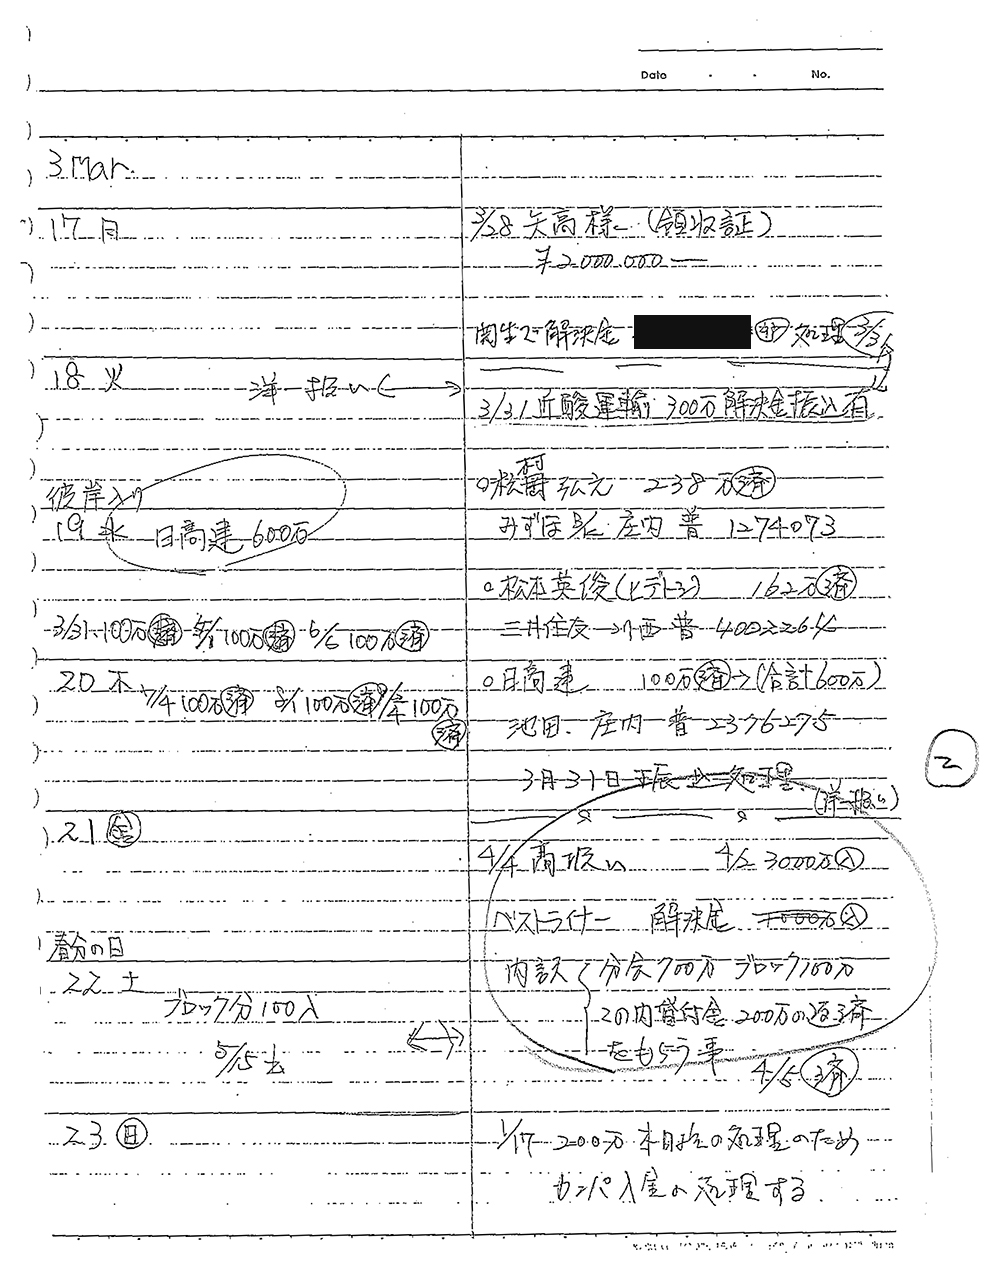 Date ・ ・ No.
3 Mar.
17 月
3/28 矢高様へ (領収証)
¥2.000.000—
関生で解決金 処理 3/31
18 火
洋一扱い
3/31 近酸運輸 300万 解決金振込有
彼岸入り
19 水
日高建 600万
○松村 弘元 238万 済
みずほ 庄内 普 1274073
○松本英俊(ヒデトシ) 162万 済
三井住友 川西 普
3/31 100万 済 5/1 100万 済 6/6 100万 済
20 木
7/4 100万 済 8/1 100万 済 9/4 100万
済
○日高建 100万 済→(合計600万)
池田. 庄内 普 2376275
3月31日 振込処理
(洋一扱い)
2
21 金
4/4 高扱い 4/2 3000万 入
ベストライナー 解決金 入
春分の日
22 土
内訳 分会700万 ブロック100万
この内貸付金 200万の返済
をもらう事
4/5 済
ブロック分100入
5/15
23 日
1/17 200万 本日 の処理のため
カンパ入金の処理する.